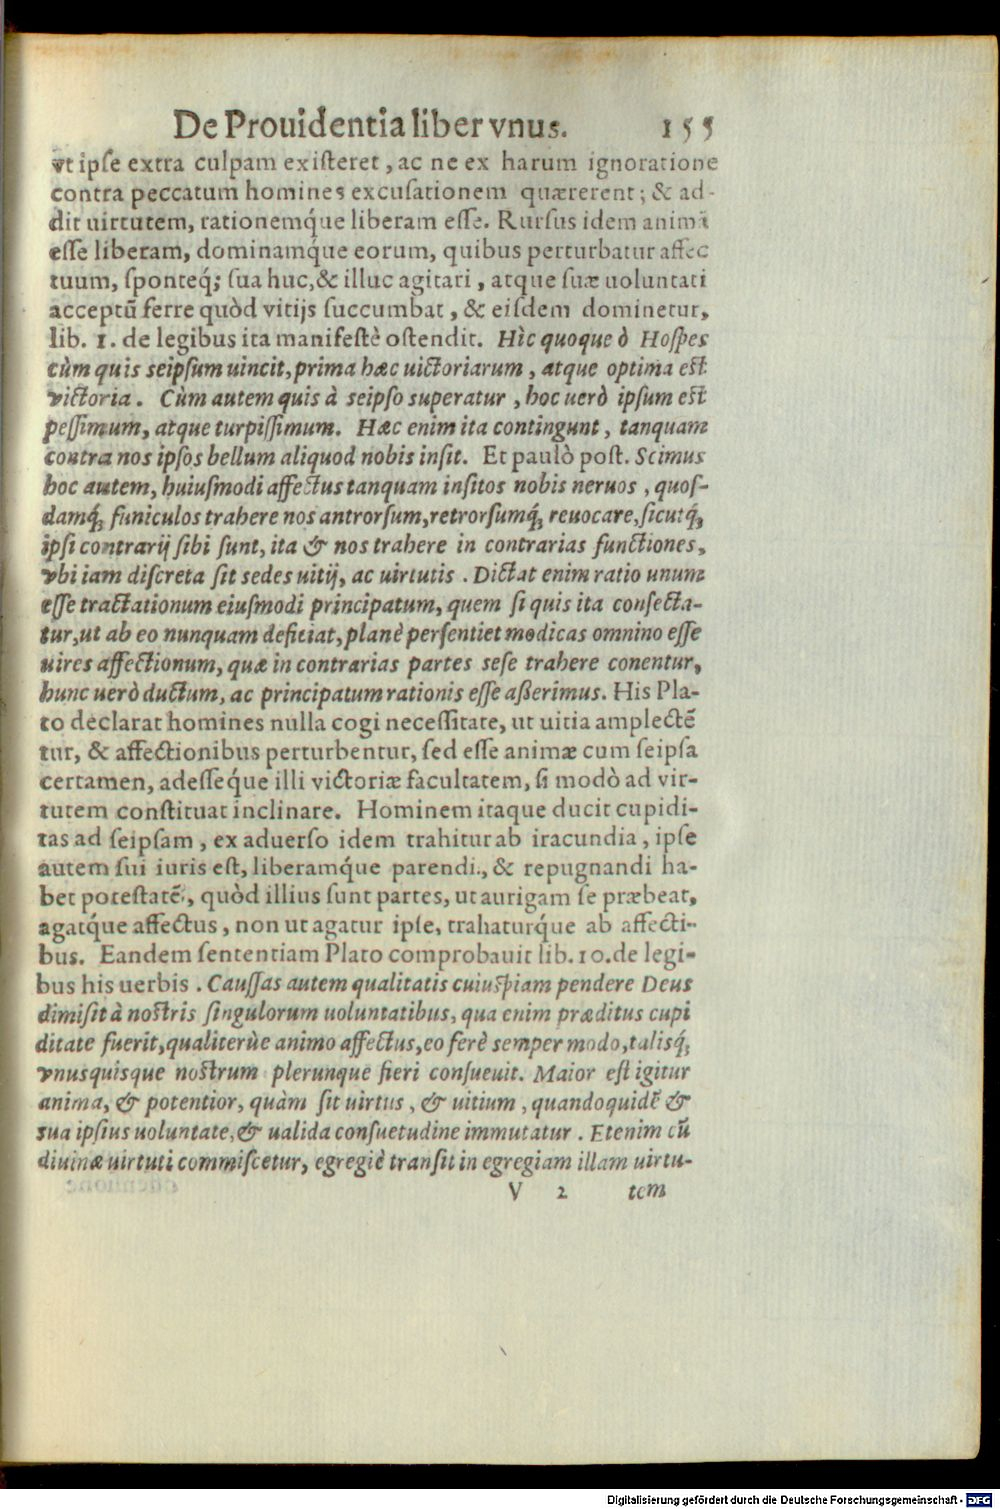 De Prouidentia liber vnus. 155
vt ipse extra culpam existeret, ac ne ex harum ignoratione
contra peccatum homines excusationem quærerent; & ad-
dit uirtutem, rationemq́ue liberam esse. Rursus idem animã
esse liberam, dominamq́ue eorum, quibus perturbatur affec
tuum, sponteq́; sua huc, & illuc agitari, atque suæ uoluntati
acceptũ ferre quòd vitijs succumbat, & eisdem dominetur,
lib. 1. de legibus ita manifestè ostendit. Hìc quoque ò Hospes
cùm quis seipsum uincit, prima hæc uictoriarum, atque optima est
victoria. Cùm autem quis à seipso superatur, hoc uerò ipsum est
pessimum, atque turpissimum. Hæc enim ita contingunt, tanquam
contra nos ipsos bellum aliquod nobis insit. Et paulò post. Scimus
hoc autem, huiusmodi affectus tanquam insitos nobis neruos, quos-
damq́; funiculos trahere nos antrorsum, retrorsumq́; reuocare, sicutq́;
ipsi contrarij sibi sunt, ita & nos trahere in contrarias functiones,
vbi iam discreta sit sedes uitij, ac uirtutis. Dictat enim ratio unum
esse tractationum eiusmodi principatum, quem si quis ita consecta-
tur, ut ab eo nunquam deficiat, planè persentiet modicas omnino esse
uires affectionum, quæ in contrarias partes sese trahere conentur,
hunc uerò ductum, ac principatum rationis esse aßerimus. His Pla-
to declarat homines nulla cogi necessitate, ut uitia amplectẽ
tur, & affectionibus perturbentur, sed esse animæ cum seipsa
certamen, adesseq́ue illi victoriæ facultatem, si modò ad vir-
tutem constituat inclinare. Hominem itaque ducit cupidi-
tas ad seipsam, ex aduerso idem trahitur ab iracundia, ipse
autem sui iuris est, liberamq́ue parendi, & repugnandi ha-
bet potestatẽ, quòd illius sunt partes, ut aurigam se præbeat,
agatq́ue affectus, non ut agatur ipse, trahaturq́ue ab affecti-
bus. Eandem sententiam Plato comprobauit lib. 10. de legi-
bus his uerbis. Caussas autem qualitatis cuiuspiam pendere Deus
dimisit à nostris singulorum uoluntatibus, qua enim præditus cupi
ditate fuerit, qualiterùe animo affectus, eo ferè semper modo, talisq́;
vnusquisque nostrum plerunque fieri consueuit. Maior est igitur
anima, & potentior, quàm sit uirtus, & uitium, quandoquidẽ &
sua ipsius uoluntate, & ualida consuetudine immutatur. Etenim cũ
diuinæ uirtuti commiscetur, egregiè transit in egregiam illam uirtu-
V 2 tem
Digitalisierung gefördert durch die Deutsche Forschungsgemeinschaft - DFG